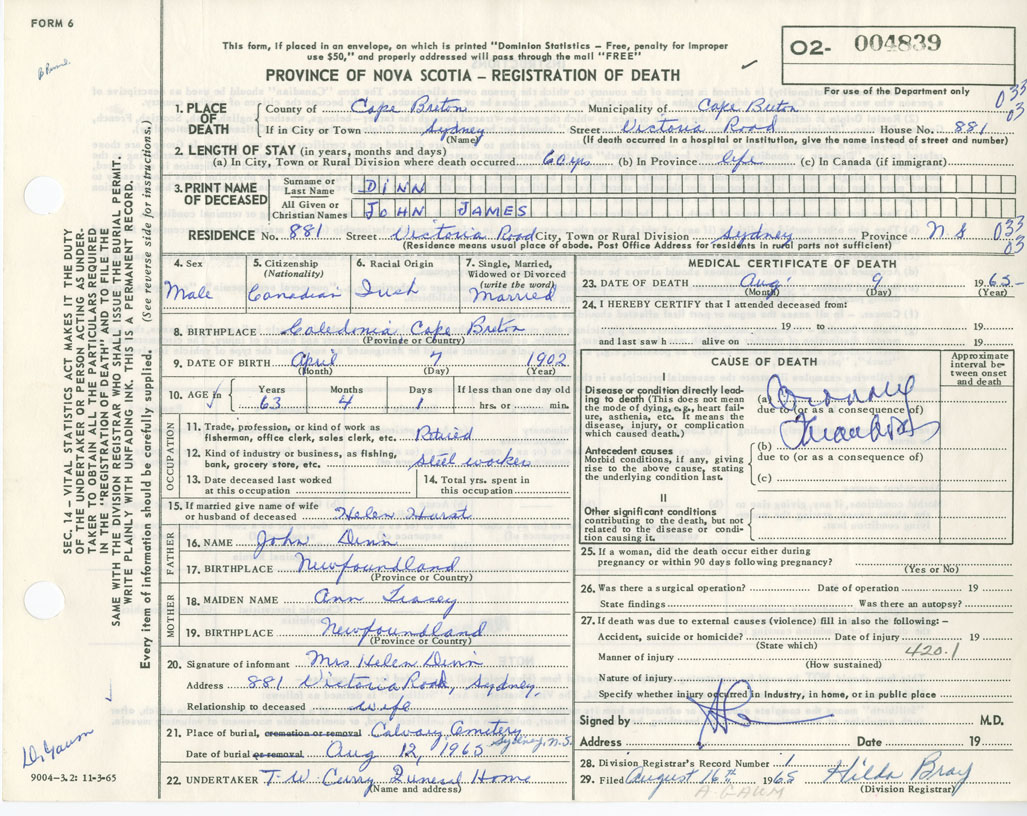 FORM 6
This form, if placed in an envelope, on which is printed "Dominion Statistics – Free, penalty for improper
use $50," and properly addressed will pass through the mail "FREE"
PROVINCE OF NOVA SCOTIA – REGISTRATION OF DEATH
O2- 004839
For use of the Department only
033
03
1. PLACE OF DEATH
County of Cape Breton Municipality of Cape Breton
If in City or Town Sydney Street Victoria Road House No. 881
(Name) (If death occurred in a hospital or institution, give the name instead of street and number)
2. LENGTH OF STAY (in years, months and days)
(a) In City, Town or Rural Division where death occurred 60 yrs (b) In Province life (c) In Canada (if immigrant)
3. PRINT NAME OF DECEASED
Surname or Last Name DINN
All Given or Christian Names JOHN JAMES
RESIDENCE No. 881 Street Victoria Road City, Town or Rural Division Sydney Province N S 033
03
(Residence means usual place of abode. Post Office Address for residents in rural parts not sufficient)
4. Sex Male
5. Citizenship (Nationality) Canadian
6. Racial Origin Irish
7. Single, Married, Widowed or Divorced (write the word) Married
8. BIRTHPLACE Caledonia Cape Breton
(Province or Country)
9. DATE OF BIRTH April 7 1902
(Month) (Day) (Year)
10. AGE in Years 63 Months 4 Days 1 If less than one day old hrs. or min.
OCCUPATION
11. Trade, profession, or kind of work as
fisherman, office clerk, sales clerk, etc. Retired
12. Kind of industry or business, as fishing,
bank, grocery store, etc. Steel worker
13. Date deceased last worked
at this occupation
14. Total yrs. spent in
this occupation
15. If married give name of wife
or husband of deceased Helen Hurst
FATHER
16. NAME John Dinn
17. BIRTHPLACE Newfoundland
(Province or Country)
MOTHER
18. MAIDEN NAME Ann Tracey
19. BIRTHPLACE Newfoundland
(Province or Country)
20. Signature of informant Mrs Helen Dinn
Address 881 Victoria Road, Sydney,
Relationship to deceased wife
21. Place of burial, cremation or removal Calvary Cemetery
Sydney, N.S.
Date of burial or removal Aug 12, 1965
22. UNDERTAKER T. W. Curry Funeral Home
(Name and address)
MEDICAL CERTIFICATE OF DEATH
23. DATE OF DEATH Aug. 9 1965
(Month) (Day) (Year)
24. I HEREBY CERTIFY that I attended deceased from:
19 to 19
and last saw h alive on 19
CAUSE OF DEATH
Approximate interval between onset and death
I
Disease or condition directly leading
to death (This does not mean
the mode of dying, e.g., heart failure,
asthenia, etc. It means the
disease, injury, or complication
which caused death.)
(a) Coronary
due to (or as a consequence of)
Thrombosis
Antecedent causes
Morbid conditions, if any, giving
rise to the above cause, stating
the underlying condition last.
(b)
due to (or as a consequence of)
(c)
II
Other significant conditions
contributing to the death, but not
related to the disease or condition
causing it.
25. If a woman, did the death occur either during
pregnancy or within 90 days following pregnancy?
(Yes or No)
26. Was there a surgical operation? Date of operation 19
State findings Was there an autopsy?
27. If death was due to external causes (violence) fill in also the following:–
Accident, suicide or homicide? Date of injury 19
(State which) 420.1
Manner of injury
(How sustained)
Nature of injury
Specify whether injury occurred in industry, in home, or in public place
Signed by M.D.
Address Date 19
28. Division Registrar's Record Number 1
29. Filed August 16th 1965 Hilda Bray
(Division Registrar)
A. GAUM
SEC. 14 – VITAL STATISTICS ACT MAKES IT THE DUTY
OF THE UNDERTAKER OR PERSON ACTING AS UNDERTAKER
TO OBTAIN ALL THE PARTICULARS REQUIRED
IN THE "REGISTRATION OF DEATH" AND TO FILE THE
SAME WITH THE DIVISION REGISTRAR WHO SHALL ISSUE THE BURIAL PERMIT.
WRITE PLAINLY WITH UNFADING INK. THIS IS A PERMANENT RECORD.
Every item of information should be carefully supplied. (See reverse side for instructions.)
Dr. Gaum
9004–3.2: 11-3-65